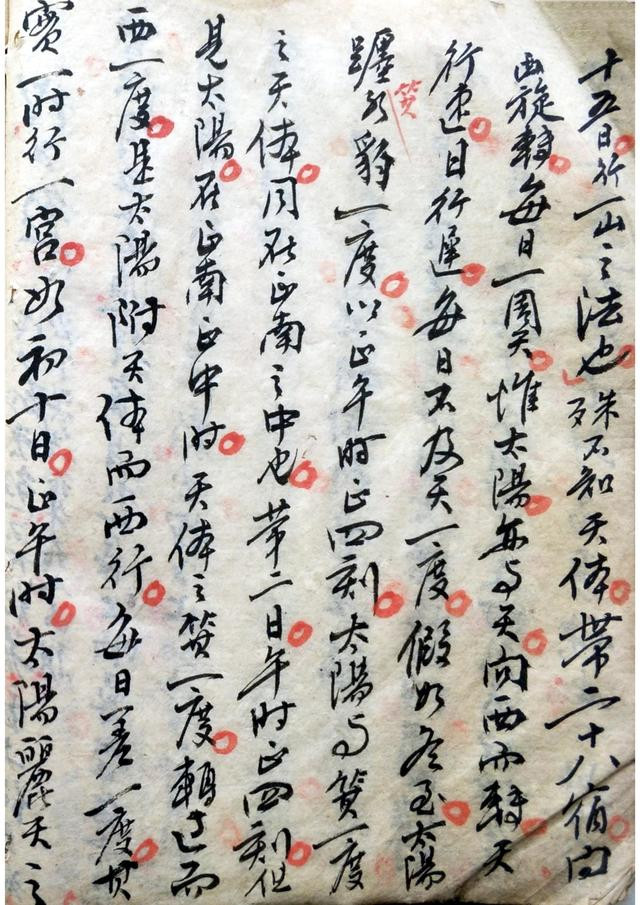 十五日行一山之法也殊不知天体帶二十八宿向
西旋轉每日一周天惟太陽每与天向西而轉天
行速日行遲每日不及天一度假如冬至太陽
躔於豹一度以正午时正四刻太陽与箕一度
箕
之天体同在正南之中也第二日午时正四刻但
見太陽在正南正中时天体之箕一度轉过而
西一度是太陽附天体而西行每日差一度其
實一时行一宮如初十日正午时太陽麗天之